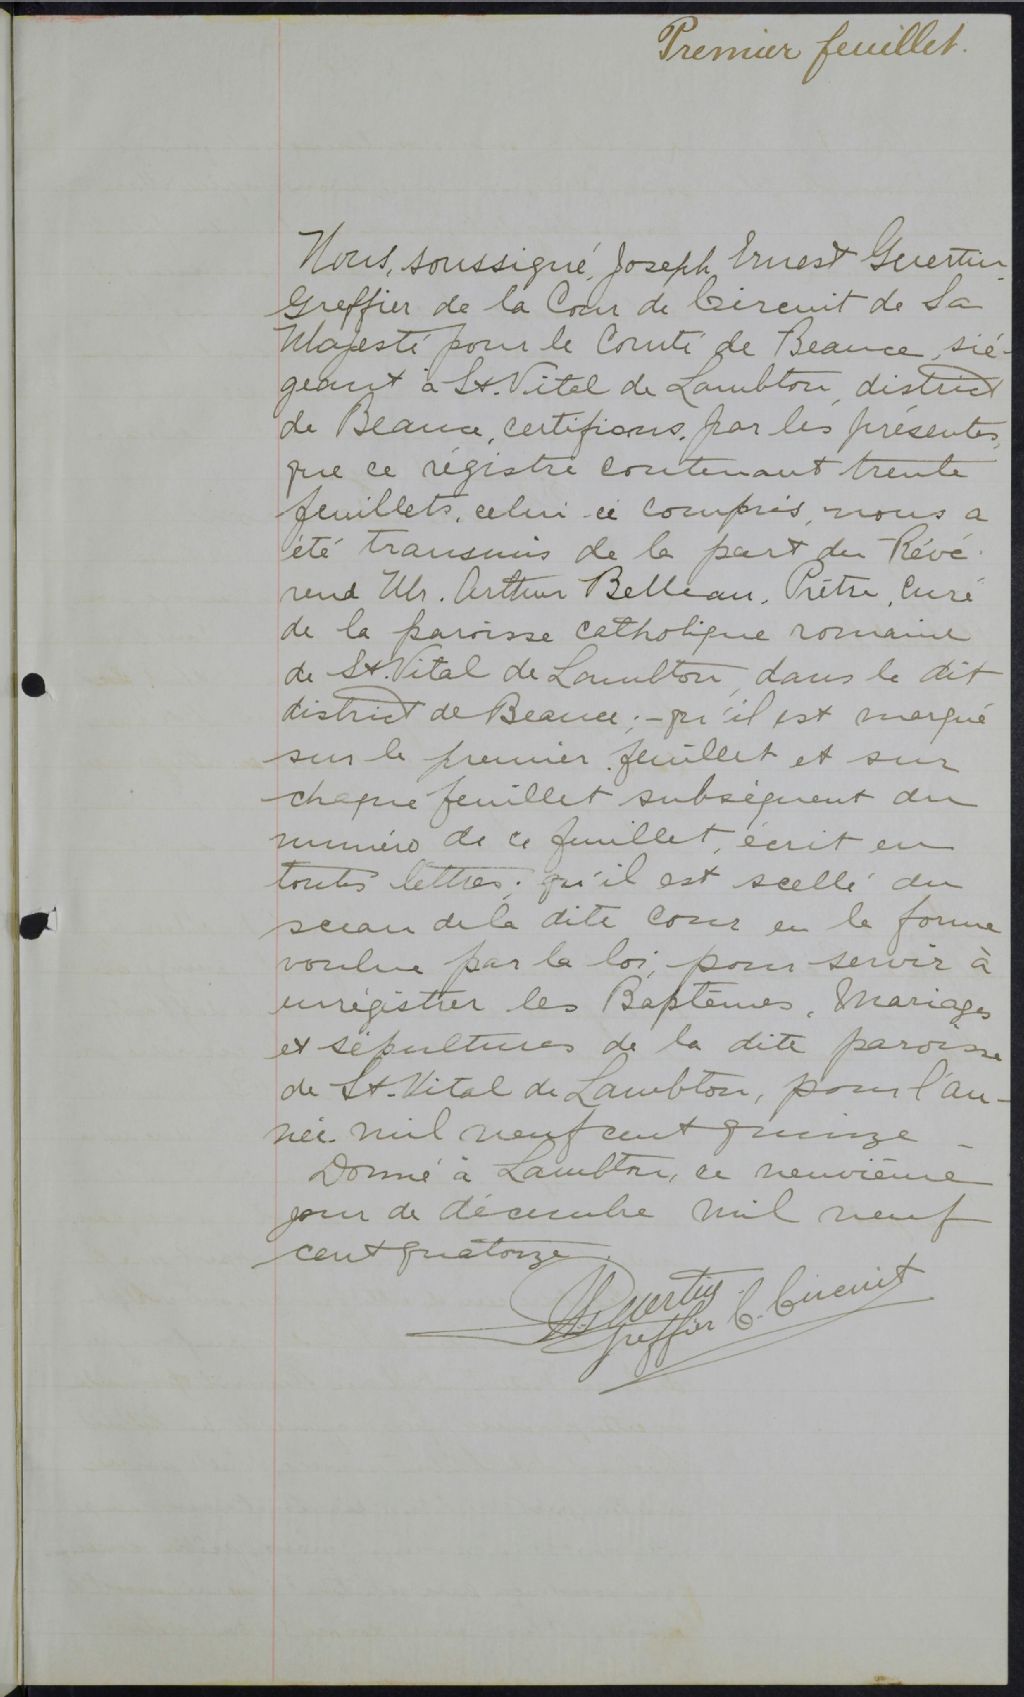 Premier feuillet.
Nous, soussigné, Joseph Ernest Guertin,
Greffier de la Cour de Circuit de Sa
Majesté pour le Comté de Beauce, sié-
geant à St. Vital de Lambton, district
de Beauce, certifions, par les présentes,
que ce régistre contenant trente
feuillets, celui-ci compris, nous a
été transmis de la part du Révé-
rend Mr. Arthur Belleau, Prêtre, Curé
de la paroisse catholique romaine
de St. Vital de Lambton, dans le dit
district de Beauce; - qu'il est marqué
sur le premier feuillet et sur
chaque feuillet subséquent du
numéro de ce feuillet, écrit en
toutes lettres; qu'il est scellé du
sceau de la dite Cour en la forme
voulue par la loi, pour servir à
enrégistrer les Baptêmes, Mariages
et sépultures de la dite paroisse
de St. Vital de Lambton, pour l'an-
née mil neuf cent quinze -
Donné à Lambton, ce neuvième
jour de décembre mil neuf
cent quatorze.
Guertin
Greffier C. Circuit